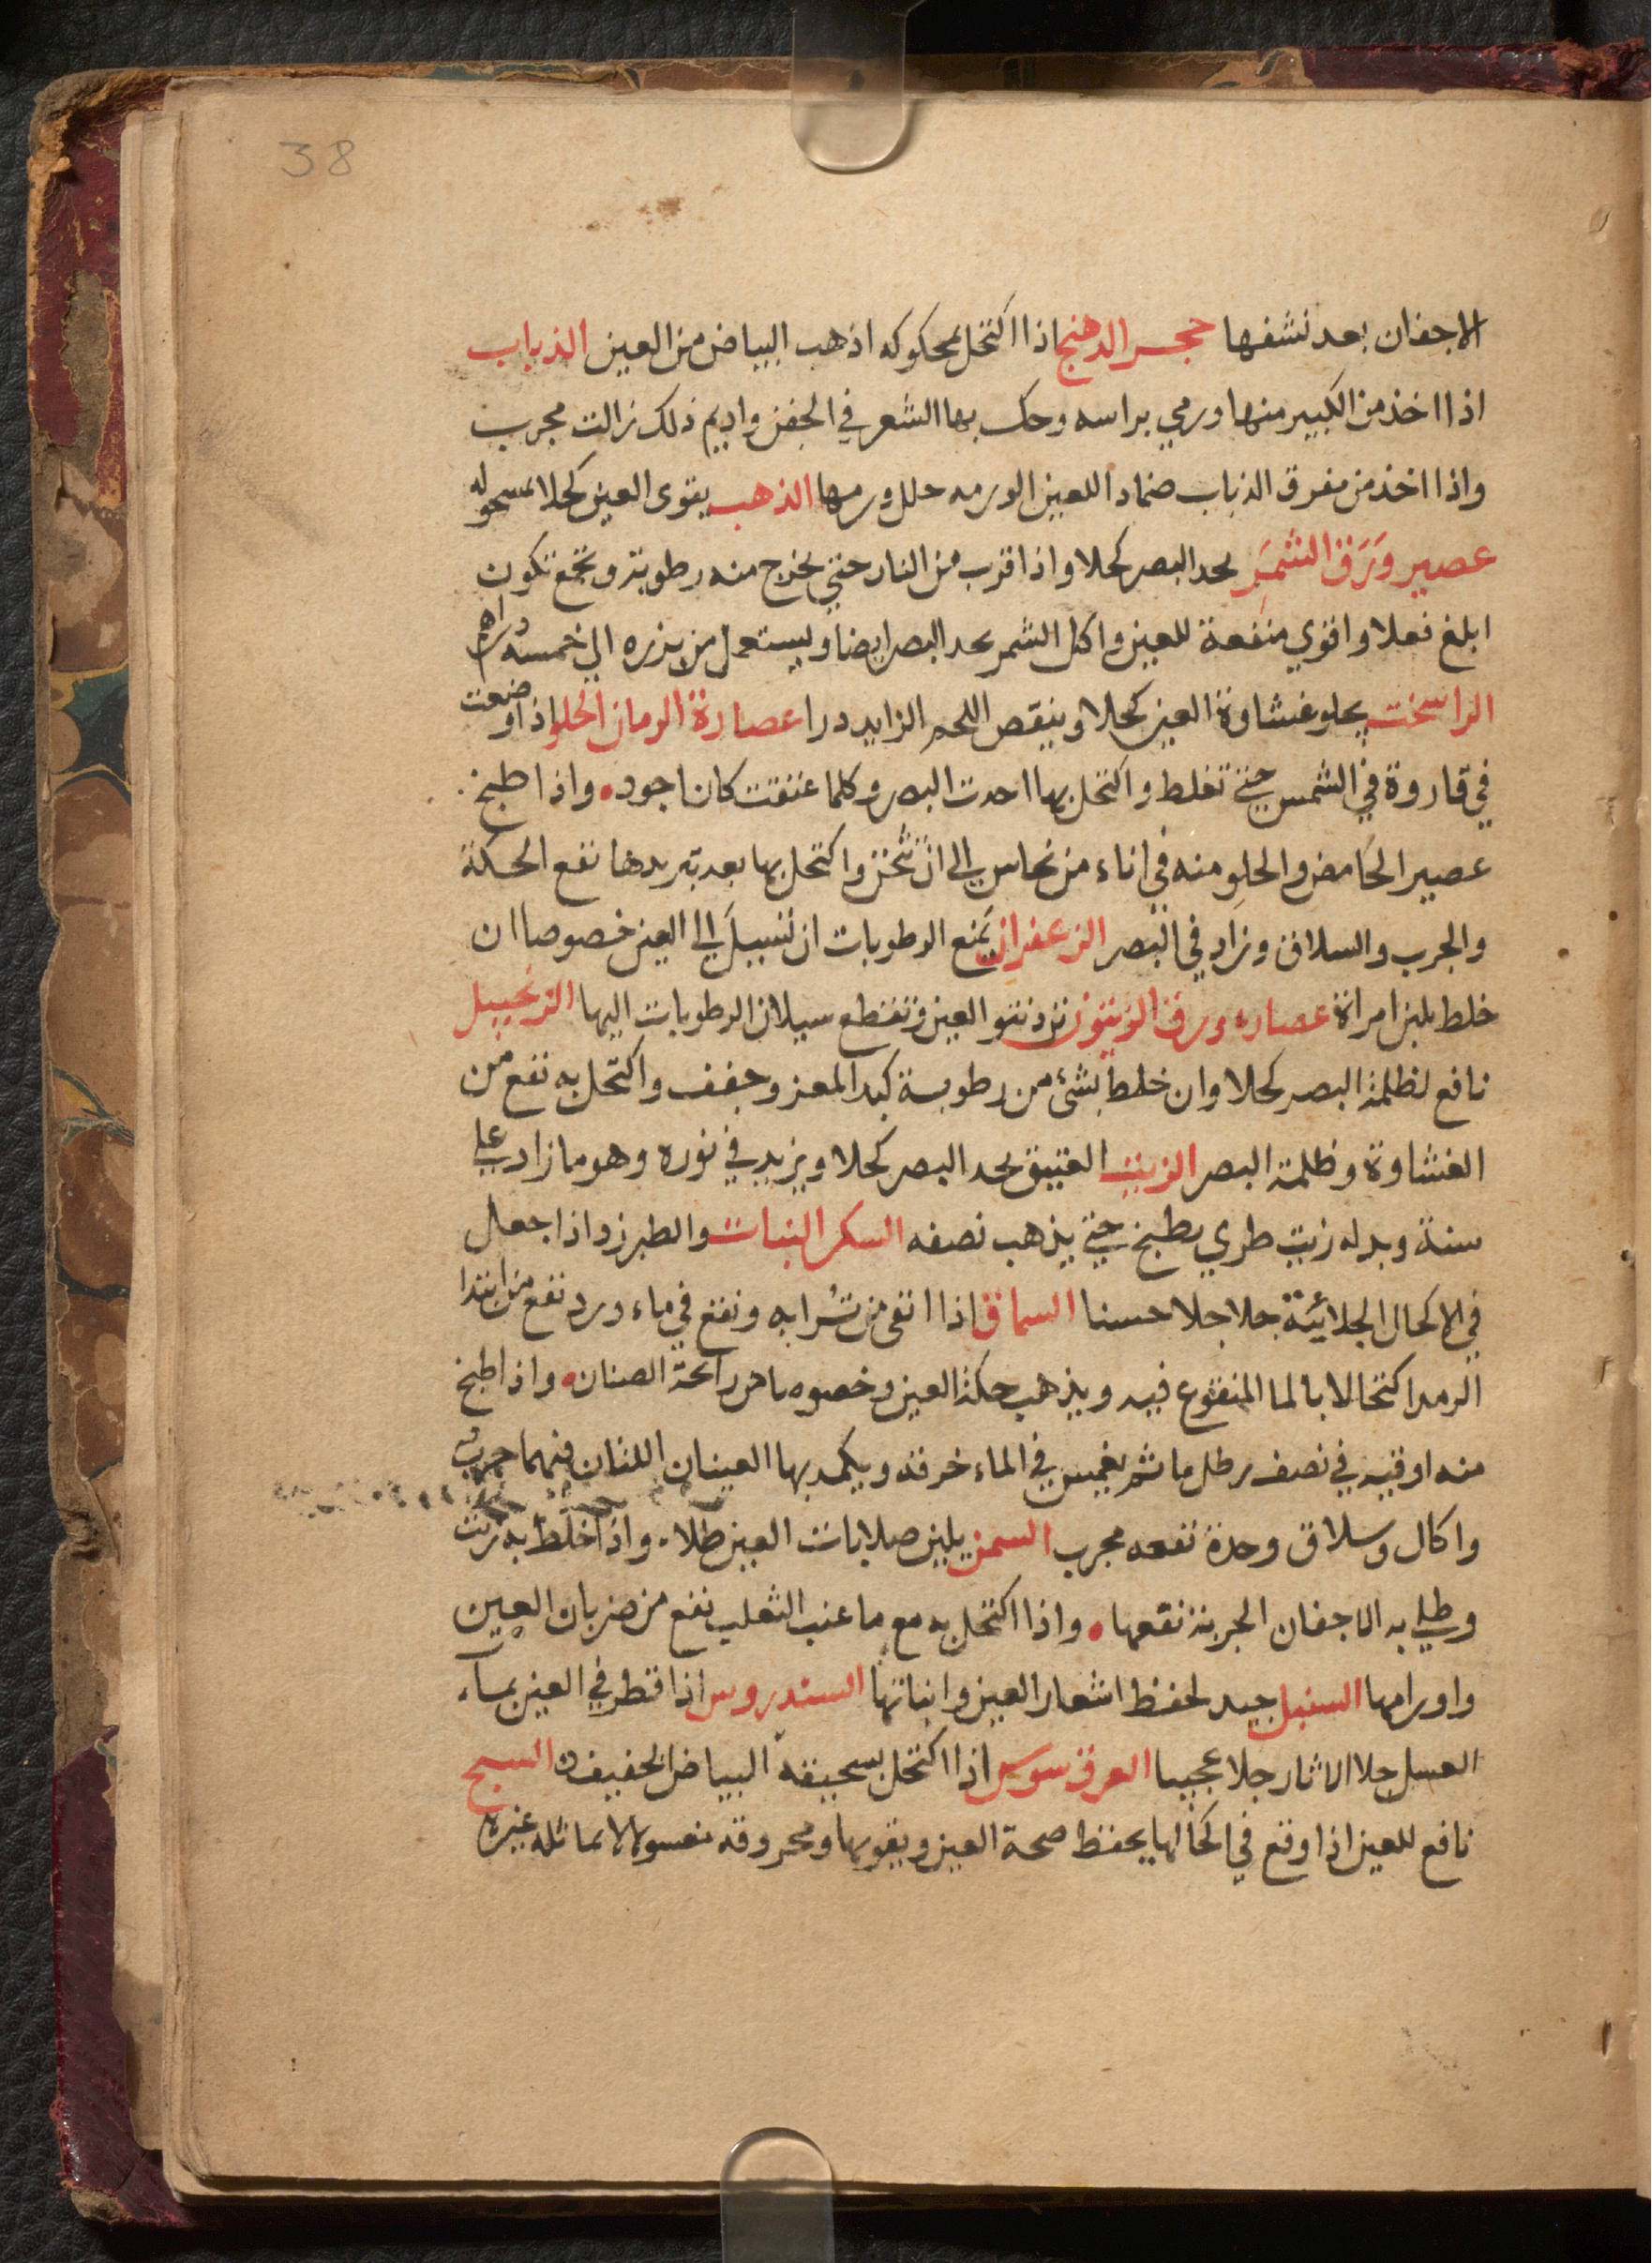 38
الاجفان بعد نشفها حجر الدهنج اذا اكتحل بمحكوكه اذهب البياض من العين الذباب
اذا اخذ من الكبير منها ورمي براسه وحك بها الشعر في الجفن واديم ذلك زالت مجرب
واذا اخذ من مفرق الذباب ضماد اللعين الورمه حلل ورمها الذهب يقوى العين كحلا بمسحوله
عصير وَرَق الشمَر يحد البصر كحلا واذا قرب من النار حتي يخرج منه رطوبة وتجمع تكون
ابلغ فعلا واقوي منفعة للعين واكل الشمر يحد البصر ايضا ويستعمل من بزره الي خمسة دراهم
الراسخت يجلو غشاوة العين كحلا وينقص اللحم الزايد درا عصارة الرمان الحلو اذا وضعت
في قاروة في الشمس حتي تغلط واكتحل بها احدت البصر وكلما عتقت كان اجود واذا طبخ
عصير الحامض والحلو منه في اناء من نحاس الي ان تثخن واكتحل بها بعد تبريدها نفع الحكة
والجرب والسلاق وزاد في البصر الزعفران يمنع الرطوبات ان تسيل الي العين خصوصا ان
خلط بلبن امراة عصاره ورق الزيتون ترد نتو العين وتقطع سيلان الرطوبات اليها الزنجبيل
نافع لظلمة البصر كحلا وان خلط بشئ من رطوبة كبد المعز وجفف واكتحل به نفع من
الغشاوة وظلمة البصر الزيت العتيق يحد البصر كحلا ويزيد في نوره وهو ما زاد علي
سنة وبدله زيت طري يطبخ حتي يذهب نصفه السكر النبات والطبرزد اذا جعل
في الاكحال الجلائية جلا جلا حسنا السماق اذا انقى من ترابه ونقع في ماء ورد نفع من ابتدا
الرمد اكتحالا بالما المنقوع فيه ويذهب حكة العين وخصوصا من رائحة الصنان واذا طبخ
منه اوقيه في نصف رطل ما ثم يغمس في الماء خرقه ويكمد بها العينان اللتان فيهما جرب
واكال وسلاق وحدة نفعه مجرب السمن يلين صلابات العين طلاء واذا خلط به زيت
وطلي به الاجفان الجربة نفعها واذا اكتحل به مع ما عنب الثعلب نفع من ضربان العين
واورامها السنبل جيد لحفظ اشعار العين وانباتها السندروس اذا قطر في العين بماء
العسل جلا الاثار جلا عجيبا العرق سوس اذا اكتحل بسحيقه البياض الخفيف السبج
نافع للعين اذا وقع في اكحالها يحفظ صحة العين ويقويها ومحروقه مغسولا لا يماثله غيره